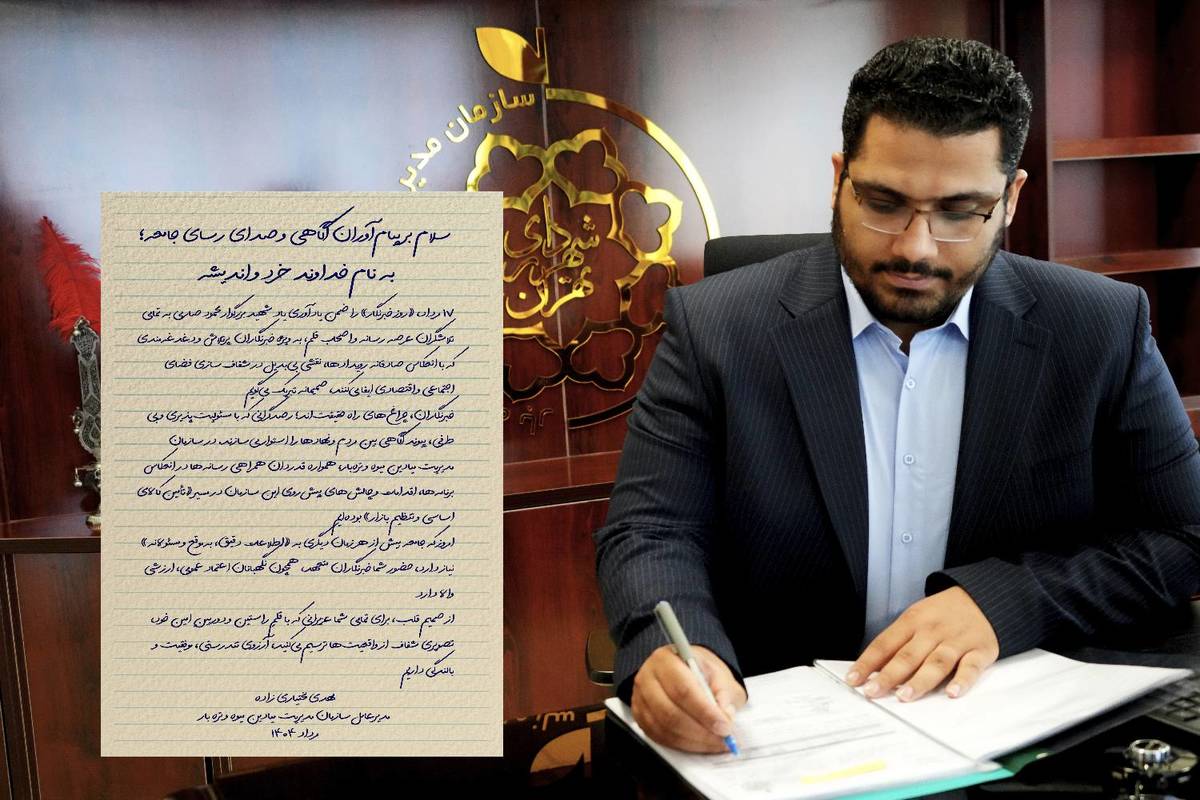 سازمان مدیر
شهرداری
تهران
سلام بر پیام‌آوران آگاهی و صدای رسای جامعه؛
به نام خداوند خرد و اندیشه
۱۷ مرداد، «روز خبرنگار» را ضمن یادآوری یاد شهید بزرگوار محمود صارمی به تمامی
تلاشگران عرصه رسانه و اصحاب قلم، به ویژه خبرنگاران پرتلاش و دغدغه‌مندی
که با انعکاس صادقانه رویدادها، نقشی بی‌بدیل در شفاف سازی فضای
اجتماعی و اقتصادی ایفا می‌کنند، صمیمانه تبریک می‌گویم
خبرنگاران، چراغ‌های راه حقیقت‌اند؛ رصدگرانی که با مسئولیت پذیری و بی
طرفی، پیوند آگاهی بین مردم و نهادها را استوار می سازند. در سازمان
مدیریت میادین میوه و تره‌بار، همواره قدردان همراهی رسانه‌ها در انعکاس
برنامه‌ها، اقدامات و چالش‌های پیش روی این سازمان در مسیر «تأمین کالای
اساسی و تنظیم بازار» بوده‌ایم
امروز که جامعه بیش از هر زمان دیگری به «اطلاعات دقیق، به‌موقع و مسئولانه»
نیاز دارد، حضور شما خبرنگاران متعهد، همچون نگهبانان اعتماد عمومی، ارزشی
والا دارد
از صمیم قلب، برای تمامی شما عزیزانی که با قلم راستین و دوربین امین خود،
تصویری شفاف از واقعیت‌ها ترسیم می‌کنید، آرزوی تندرستی، موفقیت و
بالندگی داریم
مهدی بختیاری زاده
مدیرعامل سازمان مدیریت میادین میوه و تره بار
مرداد ۱۴۰۴